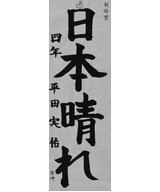 日本晴れ
四年 平田実佑